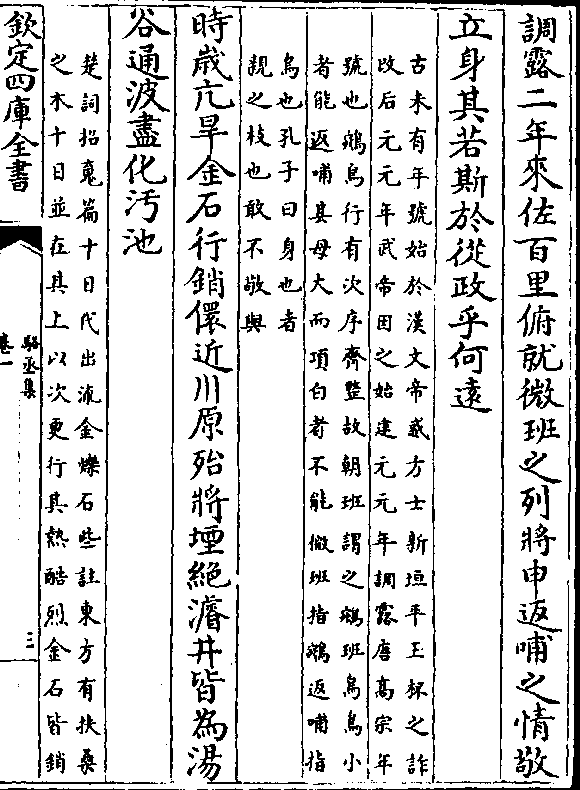 調露二年來佐百里俯就微班之列將申返哺之情敬
立身其若斯於從政乎何遠
古未有年號始於漢文帝惑方士新垣平玉杯之詐
改后元元年武帝因之始建元元年調露唐髙宗年
號也鵷鳥行有次序齊整故朝班謂之鵷班烏鳥小
者能返哺其母大而項白者不能微班指鵷返哺指
烏也孔子曰身也者
親之枝也敢不敬與
時歳亢旱金石行銷儇近川原殆將堙絶濬井皆為湯
谷通波盡化汚池
楚詞招䰟篇十日代出流金爍石些註東方有扶桑
之木十日並在其上以次更行其熱酷烈金石皆銷
欽定四庫全書
駱丞集
卷一
三